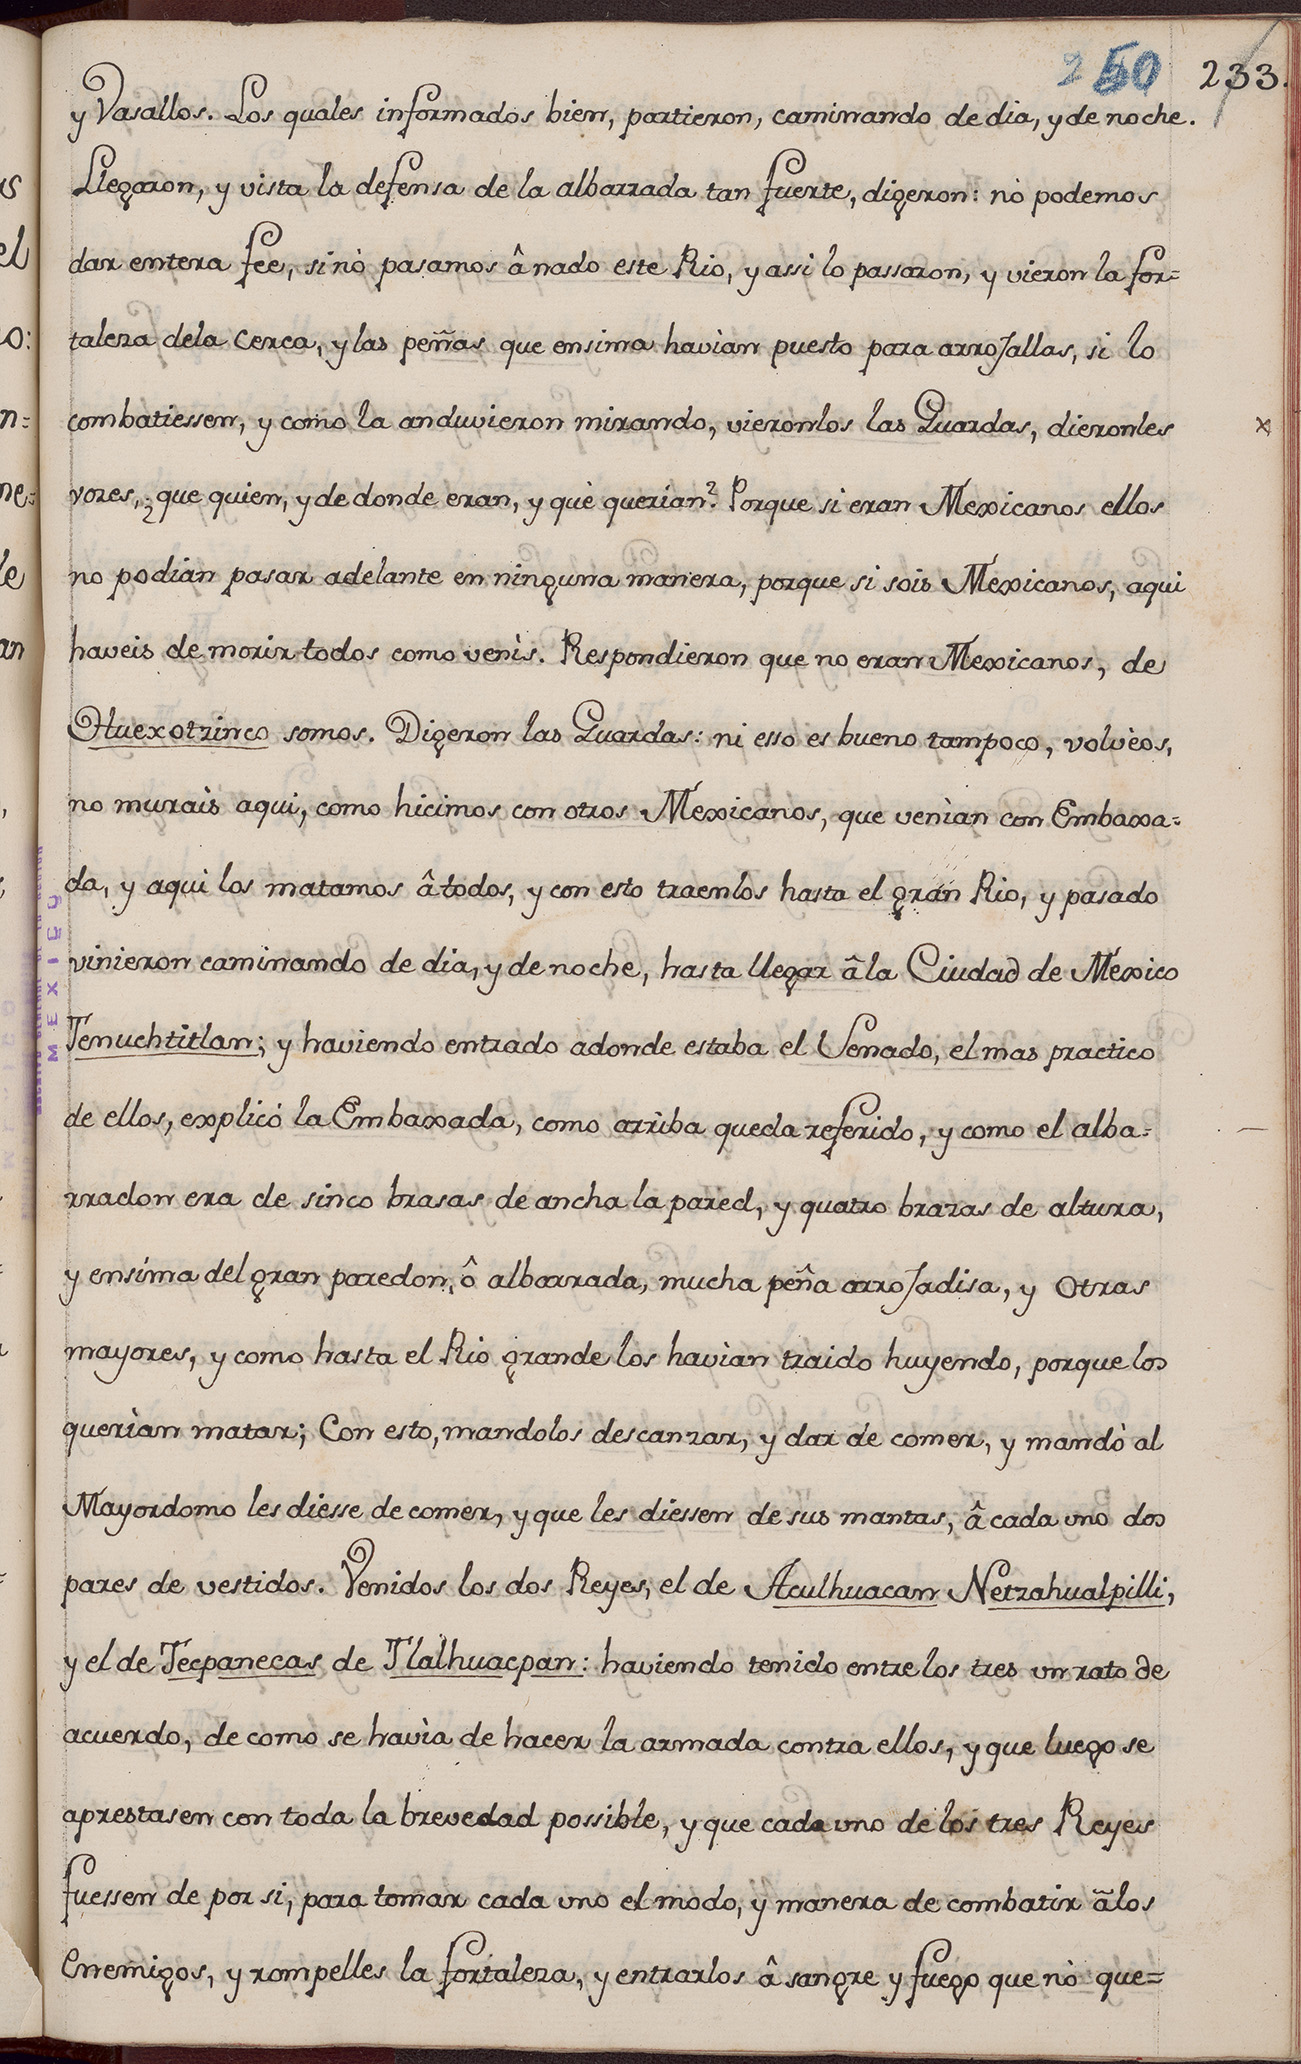 250 233.
y Vasallos. Los quales informados bien, partieron, caminando de dia, y de noche.
Llegaron, y vista la defensa de la albarrada tan fuerte, digeron: nò podemos
dar entera fee, sinò pasamos â nado este Rio, y assi lo passaron, y vieron la for=
taleza dela Cerca, y las peñas que ensima havian puesto para arrojallas, si lo
combatiessen, y como la anduvieron mirando, vieronlos las Guardas, dieronles
vozes, ¿que quien, y de donde eran, y què querian? Porque si eran Mexicanos ellos
no podian pasar adelante en ninguna manera, porque si sois Mexicanos, aqui
haveis de morir todos como venìs. Respondieron que no eran Mexicanos, de
Huexotzinco somos. Digeron las Guardas: ni esso es bueno tampoco, volvèos,
no murais aqui, como hicimos con otros Mexicanos, que venìan con Embaxa=
da, y aqui los matamos â todos, y con esto traenlos hasta el gran Rio, y pasado
vinieron caminando de dia, y de noche, hasta llegar â la Ciudad de Mexico
Tenuchtitlan; y haviendo entrado adonde estaba el Senado, el mas practico
de ellos, explicó la Embaxada, como arriba queda referido, y como el alba=
rradon era de sinco brasas de ancha la pared, y quatro brazas de altura,
y ensima del gran paredon, ô albarrada, mucha peña arrojadisa, y otras
mayores, y como hasta el Rio grande los havìan traido huyendo, porque los
querìan matar; Con esto, mandolos descanzar, y dar de comer, y mandò al
Mayordomo les diesse de comer, y que les diessen de sus mantas, â cada uno dos
pares de vestidos. Venidos los dos Reyes, el de Aculhuacan Netzahualpilli,
y el de Tecpanecas de Tlalhuacpan: haviendo tenido entre los tres un rato de
acuerdo, de como se havìa de hacer la armada contra ellos, y que luego se
aprestasen con toda la brevedad possible, y que cada uno de los tres Reyes
fuessen de por si, para tomar cada uno el modo, y manera de combatir â los
Enemigos, y rompelles la fortaleza, y entrarlos â sangre y fuego que nò que=